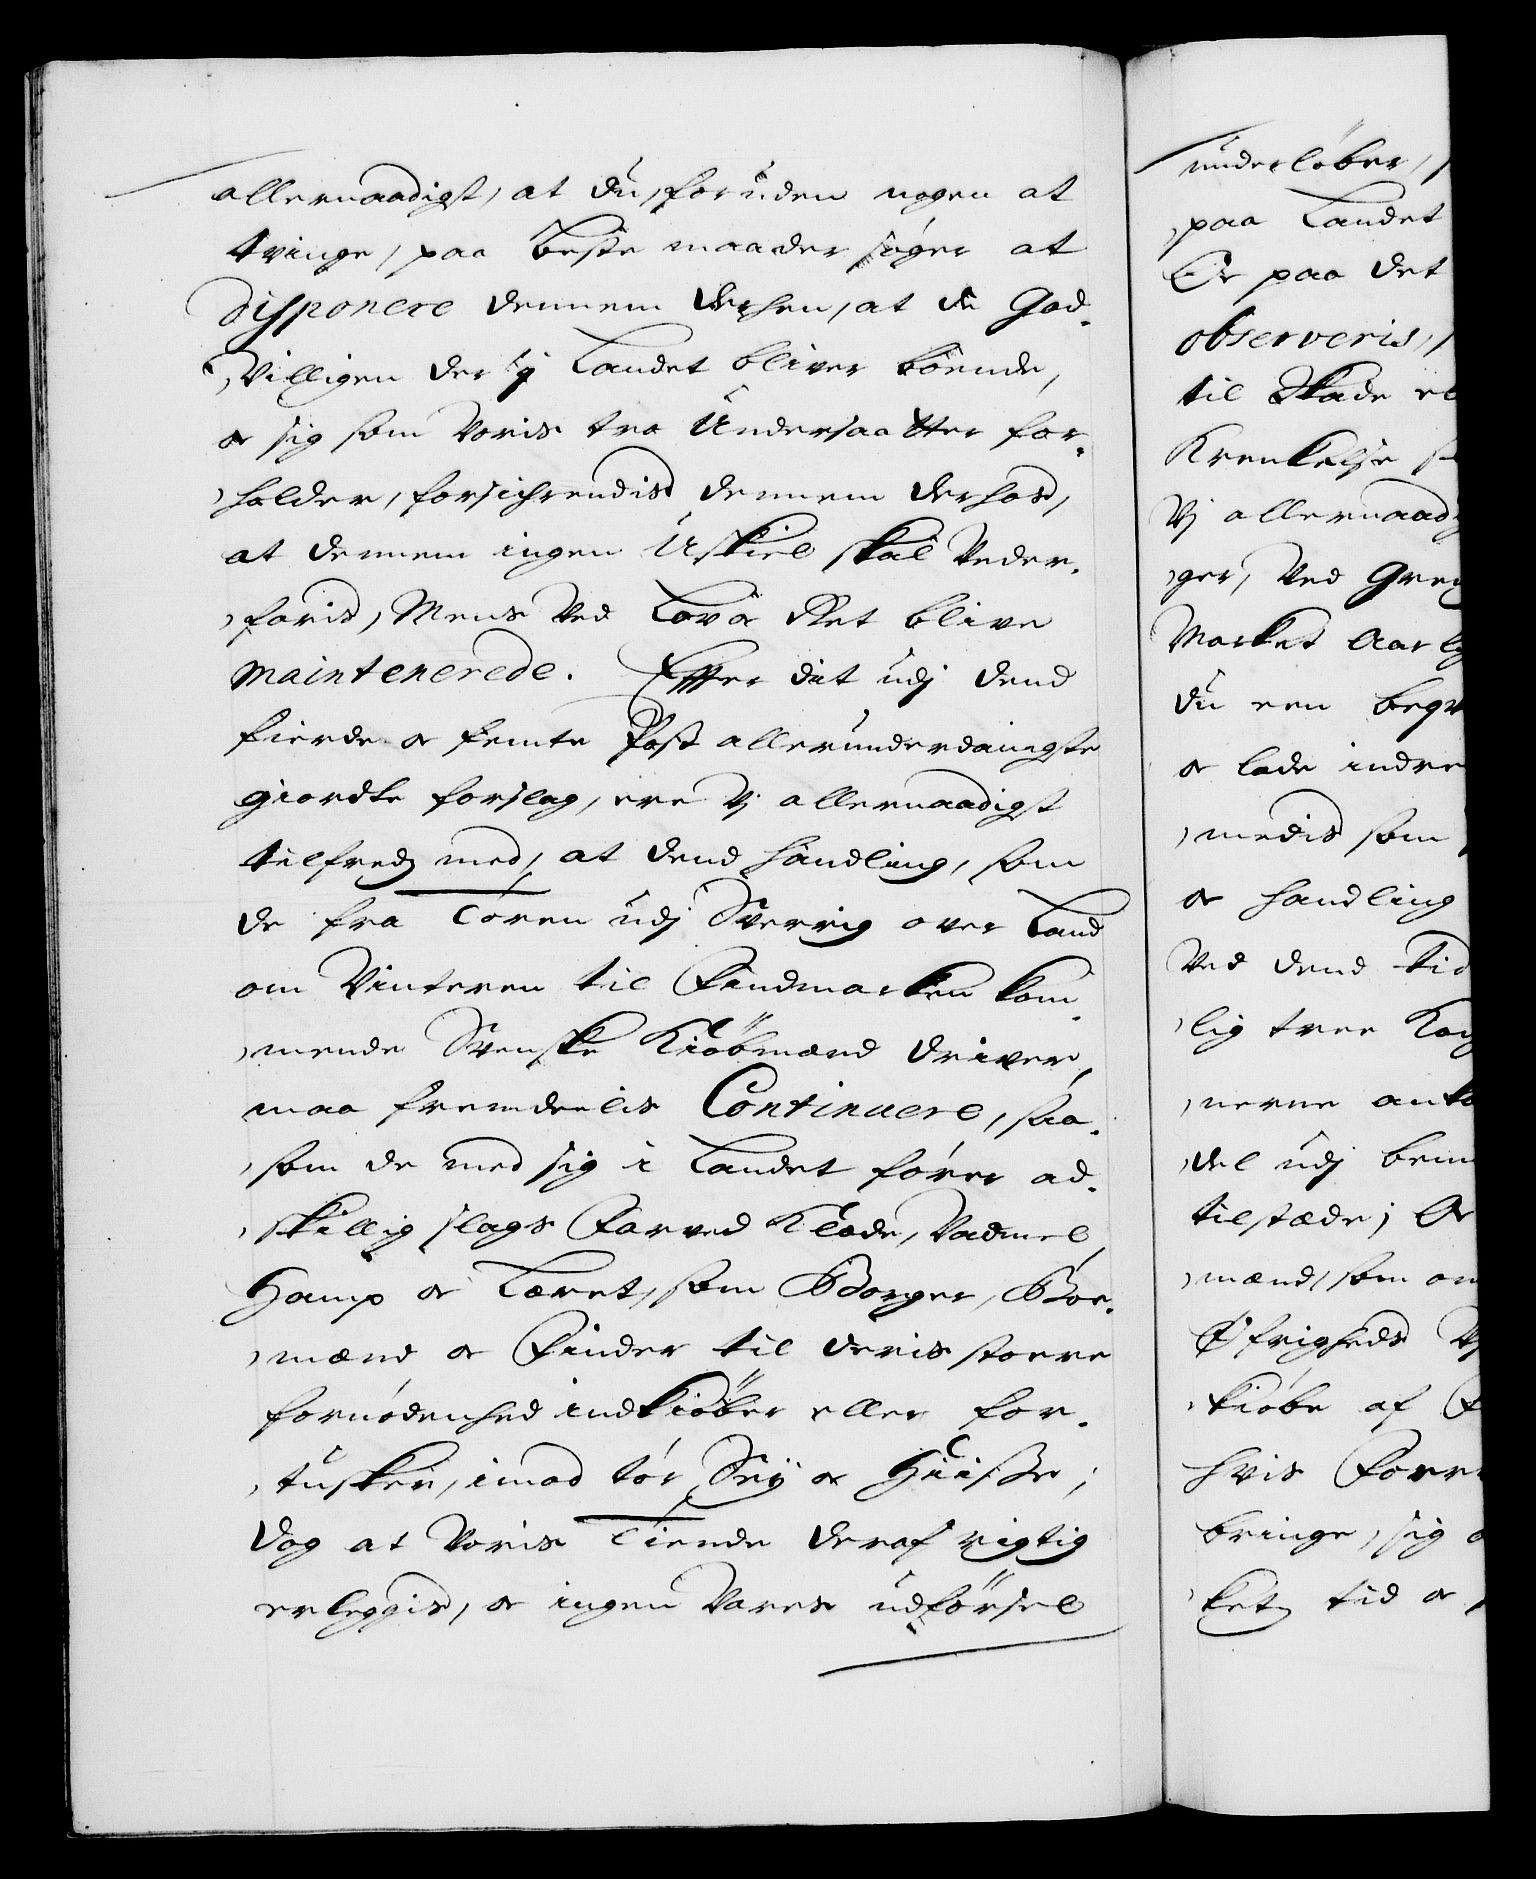 allernaadigst, at du, foruden nogen at
tvinge, paa beste maader søger at
disponere dennem derhen, at de God-
villigen der y Landet bliver boende,
og sig som Voris tro Undersaatter for-
holder, forsichrendis dennem derhos,
at dennem ingen Uskiel skal Veder-
faris, Mens Ved Lov og Ret blive
maintenerede. Effter dit udj dend
fierde og femte Post allerunderdanigste
giordte forslag, ere Vj allernaadigst
tilfreds med, at dend handling, som
de fra Toren udj Sverrig over Land
om Vinteren til Findmarken kom-
mende Svenske Kiöbmænd driver,
maa fremdeelis Continuere, saa-
som de med sig i Landet fører ad-
skillig slags Farved Klæde, Vadmel,
Hamp og Læret, som Borger, Boe-
mænd og Finder til deris stoere
fornødenhed indkiöber eller for-
tusker, imod tør Seij og Huisße;
dog at Voris Tiende deraf rigtig
erleggis, og ingen Vares udførsel
underløber,
paa Landet
Og paa det
observeris,
til Skade
Krenkelse
Vj allernaad
ger, Ved
Market Aarl
du een
og lade
medis som
og handling
Ved dend tid
lig tree
nerne
del udj
tilstæde; Og
mænd, som
Øfrigheds
kiöbe af
hvis
bringe, sig
kets tid og